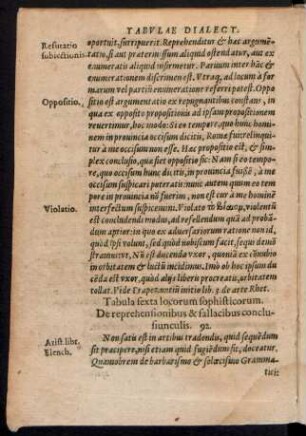 TABVLAE DIALECT.
Refutatio
subiectionis
oportuit, surripuerit. Reprehenditur & hac argumē-
ratio, si aut prætermissum aliquid ostendatur, aut ex
enumeratis aliquid infirmetur. Parium inter hāc &
enumerationem discrimen est. Vtraq; ad locum à for-
marum vel partiū enumeratione referri potest. Oppo
Oppositio.
sitio est argumentatio ex repugnantibus constans, in
qua ex opposito propositionis ad ipsam propositionem
reuertimur, hoc modo: Si eo tempore, quo hunc homi-
nem in prouincia occisum esse dicitis, Romæ fui: relinqui-
tur à me occisum non esse. Hæc propositio est, & sim-
plex conclusio, qua fiet oppositio sic: Nam si eo tempo-
re, quo occisum hunc dicitis, in prouincia fuissē, à me
occisum suspicari poteratis: nunc autem quum eo tem-
pore in prouincia nō fuerim, non est cur à me hominē
Violatio.
interfectum suspicemini. Violatio violentū
est concludendi modus, ad resellendum quā ad probā-
dum aptior: in quo ex aduersariorum ratione non id,
quod ipsi volunt, sed quòd nobiscum facit, sequi demō
stramus, vt, Nō est ducenda vxor, quoniam ex cōnubio
in orbitatem & luctū incidimus. Imò ob hoc ipsum du
cēda est vxor, quòd aliquē liberis procreatis, orbitatem
tollat. Vide Trapezuntiū initio lib. 3 de arte Rhet.
Tabula sexta locorum sophisticorum.
De reprehensionibus & fallacibus conclu-
siunculis. 92.
Arist. libr.
Elench.
Non satis est in artibus tradendis, quid sequēdum
sit præcipere, nisi etiam quid fugiēdum sit, doceatur.
Quamobrem de barbarismo & solœcismo Gramma-
tici: